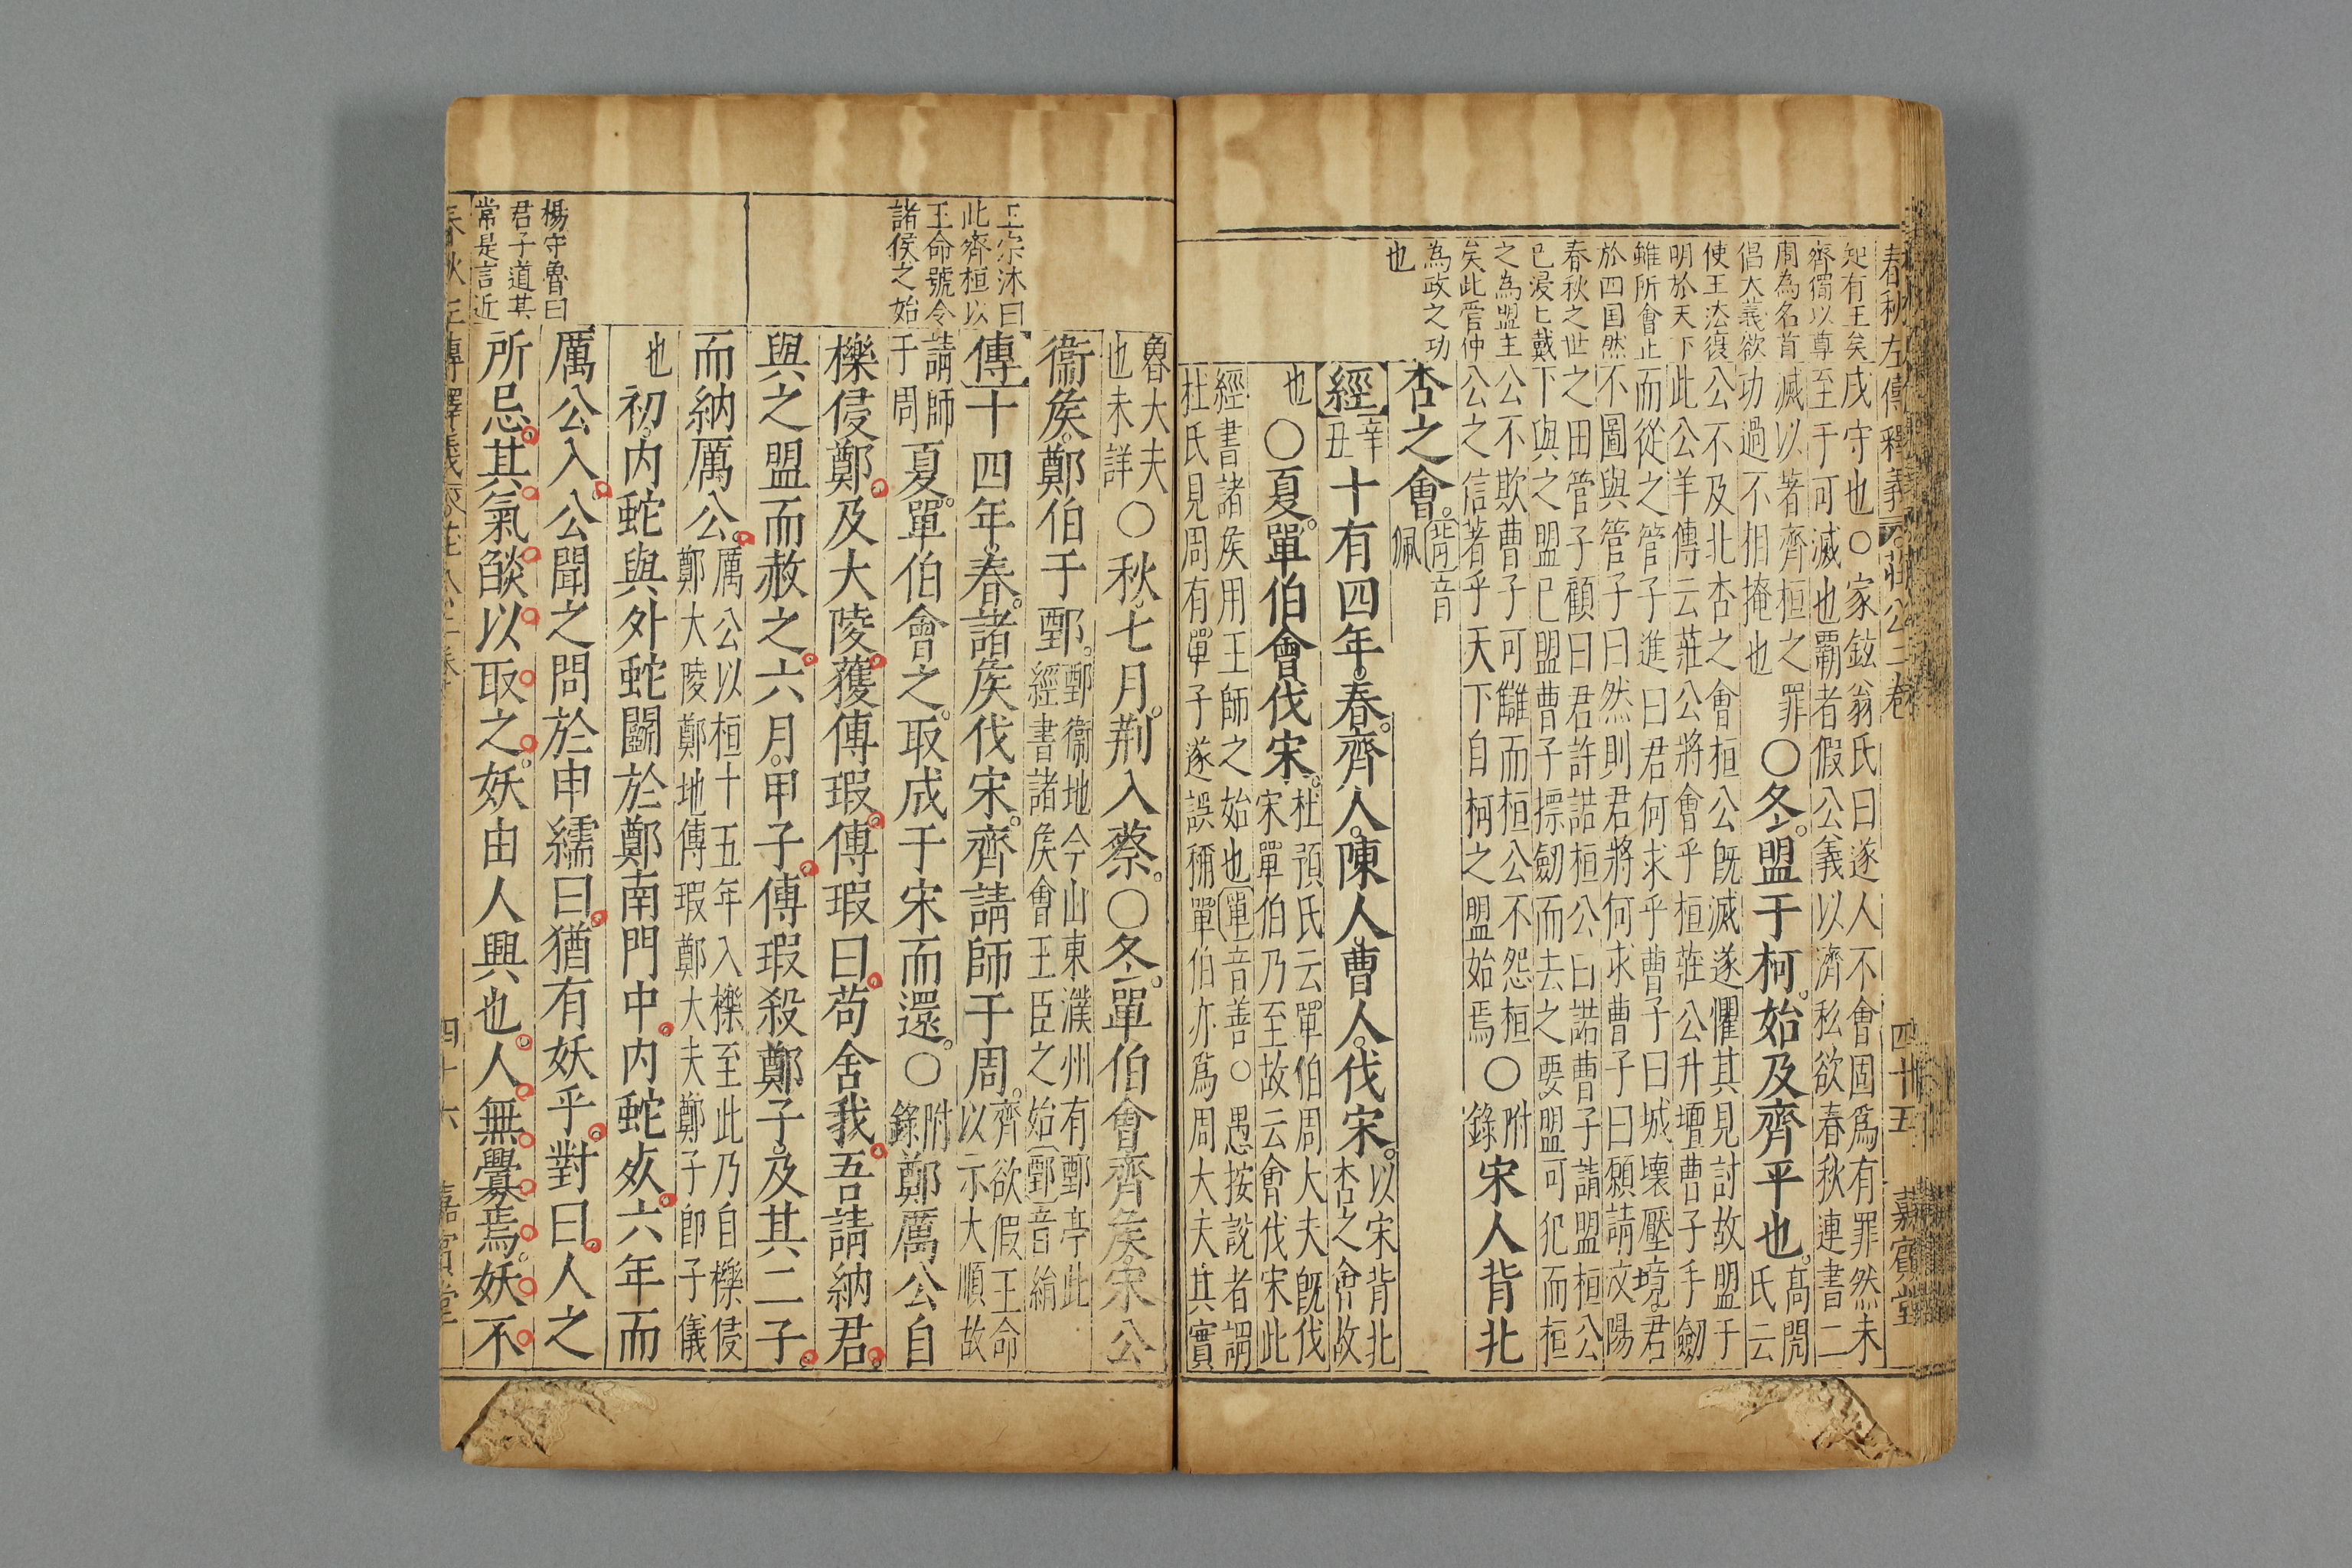 春秋左傳釋義 莊公三卷 四十五 嘉賓堂
知有王矣
齊獨以尊
周為名首
倡大義欲
使王法復
明於天下
雖所會止
於四国然
春秋之世
已浸七戴
之為盟主
矣此管仲
為政之功
也
戌守也○家鉉翁氏曰遂人不會固爲有罪然未
至于可滅也霸者假公義以濟私欲春秋連書二
滅以著齊桓之罪
功過不相掩也
○冬。盟于柯。始及齊平也。
高閌
氏云
公不及北杏之會桓公既滅遂懼其見討故盟于
此公羊傳云莊公將會乎桓莊公升壇曹子手劒
而從之管子進曰君何求乎曹子曰城壞壓境君
不圖與管子曰然則君將何求曹子曰願請汶陽
之田管子顧曰君許諾桓公曰諾曹子請盟桓公
下與之盟已盟曹子摽劒而去之要盟可犯而桓
公不欺曹子可讎而桓公不怨桓
公之信著乎天下自柯之盟始焉
○附錄宋人背北
杏之會。
背音
佩
經辛丑十有四年。春。齊人。陳人。曹人。伐宋。
以宋背北
杏之會故
也
○夏。單伯會伐宋。
杜預氏云單伯周大夫既伐
宋單伯乃至故云會伐宋此
經書諸矦用王師之始也單音善○愚按說者謂
杜氏見周有單子遂誤稱單伯亦爲周大夫其實
王宗沐曰
此齊桓以
王命號令
諸侯之始
楊守魯曰
君子道其
常是言近
魯大夫
也未詳
○秋。七月。荆入蔡。○冬。單伯會齊矦宋公
衞矦。鄭伯于鄄。
鄄衞地今山東濮州有鄄亭此
經書諸矦會王臣之始鄄音絹
傳十四年。春。諸矦伐宋。齊請師于周。
齊欲假王命
以示大順故
請師
于周
夏。單伯會之。取成于宋而還。○附錄鄭厲公自
櫟侵鄭。及大陵。獲傅瑕。傅瑕曰。苟舍我。吾請納君。
與之盟而赦之。六月。甲子。傅瑕殺鄭子。及其二子。
而納厲公。
厲公以桓十五年入櫟至此乃自櫟侵
鄭大陵鄭地傅瑕鄭大夫鄭子卽子儀
也
初。内蛇與外蛇鬬於鄭南門中。内蛇死。六年而
厲公入。公聞之問於申繻曰。猶有妖乎。對曰。人之
所忌。其氣燄以取之。妖由人興也。人無釁焉。妖不
四十六